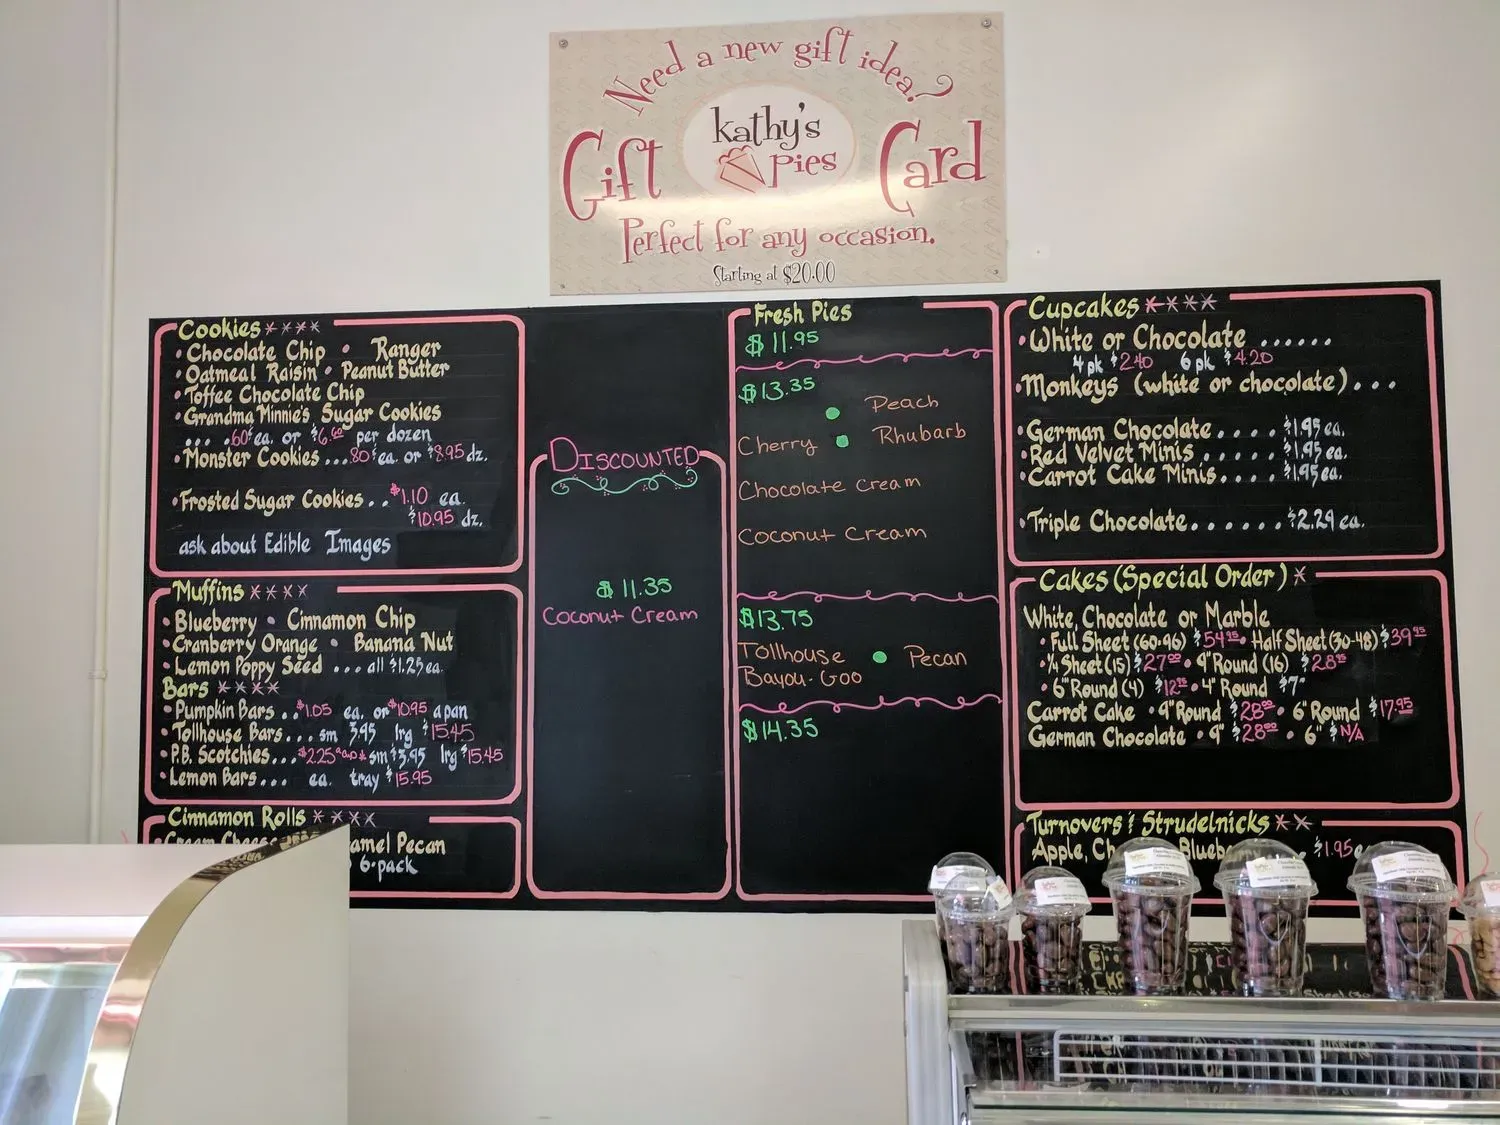 Need a new gift idea?
kathy's
pies
Gift Card
Perfect for any occasion.
Starting at $20.00
Cookies ****
• Chocolate Chip • Ranger
• Oatmeal Raisin • Peanut Butter
• Toffee Chocolate Chip
• Grandma Minnie's Sugar Cookies
... .60¢ ea. or $6.60 per dozen
• Monster Cookies ... .80¢ ea. or $8.95 dz.
• Frosted Sugar Cookies .. $1.10 ea.
$10.95 dz.
ask about Edible Images
Muffins ****
• Blueberry • Cinnamon Chip
• Cranberry Orange • Banana Nut
• Lemon Poppy Seed ... all $1.25 ea.
Bars ****
• Pumpkin Bars .. $1.05 ea. or $10.95 a pan
• Tollhouse Bars ... sm 3.95 lrg $15.45
• P.B. Scotchies ... $2.25 sm $3.95 lrg $15.45
• Lemon Bars ... ea. tray $15.95
Cinnamon Rolls ****
• Cream Cheese
Pecan
6-pack
Discounted
$11.35
Coconut Cream
Fresh Pies
$11.95
$13.35
• Peach
Cherry • Rhubarb
Chocolate Cream
Coconut Cream
$13.75
Tollhouse • Pecan
Bayou-Goo
$14.35
Cupcakes ****
• White or Chocolate ......
4 pk $2.40 6 pk $4.20
• Monkeys (white or chocolate) ...
• German Chocolate .... $1.95 ea.
• Red Velvet Minis ..... $1.95 ea.
• Carrot Cake Minis .... $1.95 ea.
• Triple Chocolate ...... $2.29 ea.
Cakes (Special Order) *
White, Chocolate or Marble
• Full Sheet (60-96) $54.95 • Half Sheet (30-48) $39.95
• ¼ Sheet (15) $27.00 • 9" Round (16) $28
• 6" Round (4) $12.95 • 4" Round $7
Carrot Cake • 9" Round $28.00 • 6" Round $17.95
German Chocolate • 9" $28.00 • 6" $N/A
Turnovers & Strudelnicks **
Apple, $1.95